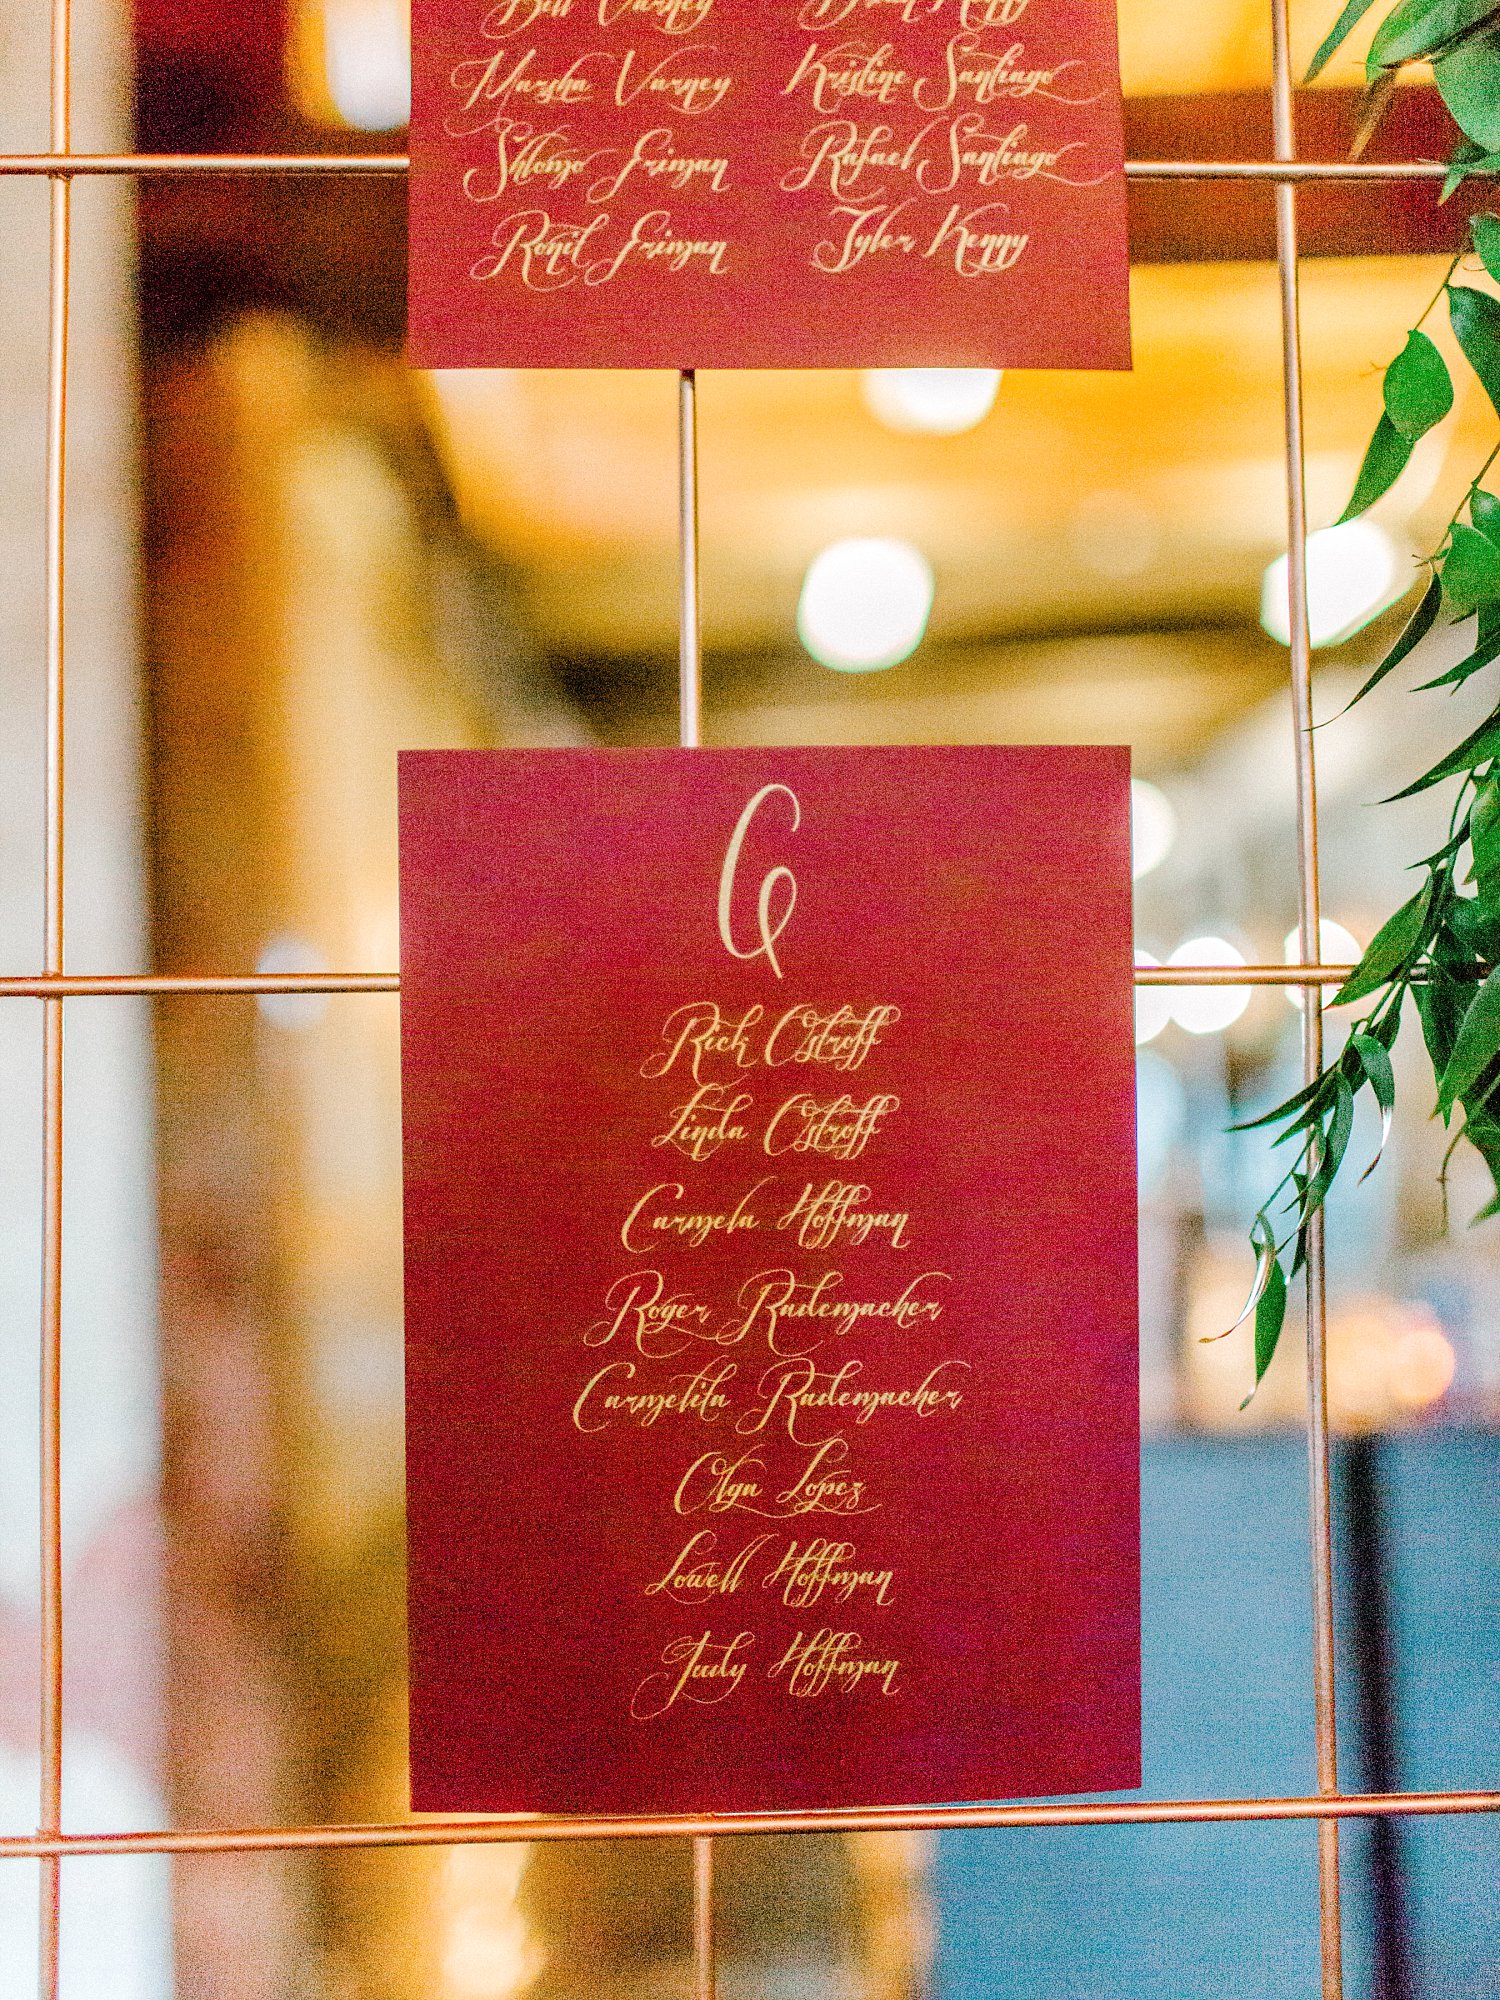 Bill Varney
Marsha Varney
Shlomo Friman
Ronit Friman
Kristine Santiago
Rafael Santiago
Tyler Kenny
6
Rick Ostroff
Linda Ostroff
Carmela Hoffman
Roger Rademacher
Carmelita Rademacher
Olga Lopez
Lowell Hoffman
Judy Hoffman